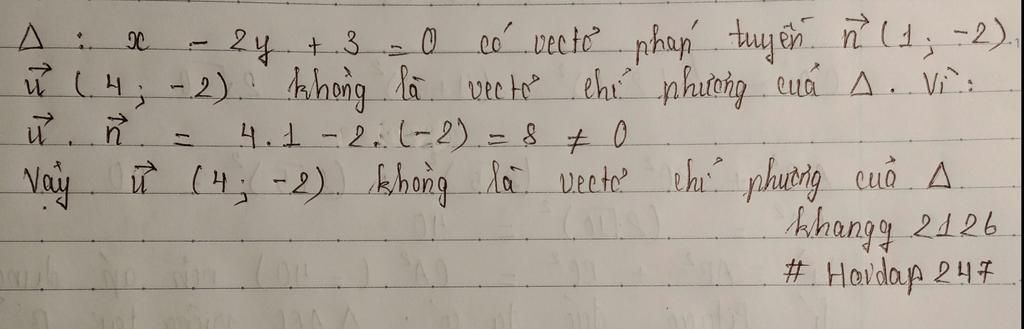 Δ : x - 2y + 3 = 0 có vectơ pháp tuyến n⃗ (1 ; -2)
u⃗ (4 ; -2) không là vectơ chỉ phương của Δ . Vì :
u⃗ . n⃗ = 4.1 - 2.(-2) = 8 ≠ 0
Vậy u⃗ (4 ; -2) không là vectơ chỉ phương của Δ
khangg 2126
# Hoidap 247